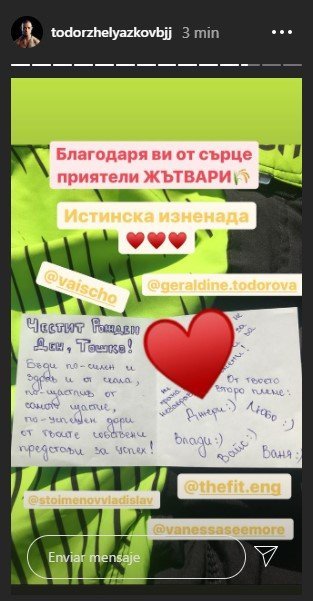 todorzhelyazkovbjj 3 min
Благодаря ви от сърце
приятели ЖЪТВАРИ🌾
Истинска изненада
❤️❤️❤️
@vaischo
@geraldine.todorova
Честит Рожден
Ден, Тошко!
Бъди по-силен и
здрав и от скала,
по-щастлив от
самото щастие,
по-успешен дори
от твоите собствени
представи за успех!
От твоето
второ племе:
Джери:) Любо:)
Влади:)
Вайс:) Ваня:)
@thefit.eng
@stoimenovvladislav
@vanessaseemore
Enviar mensaje